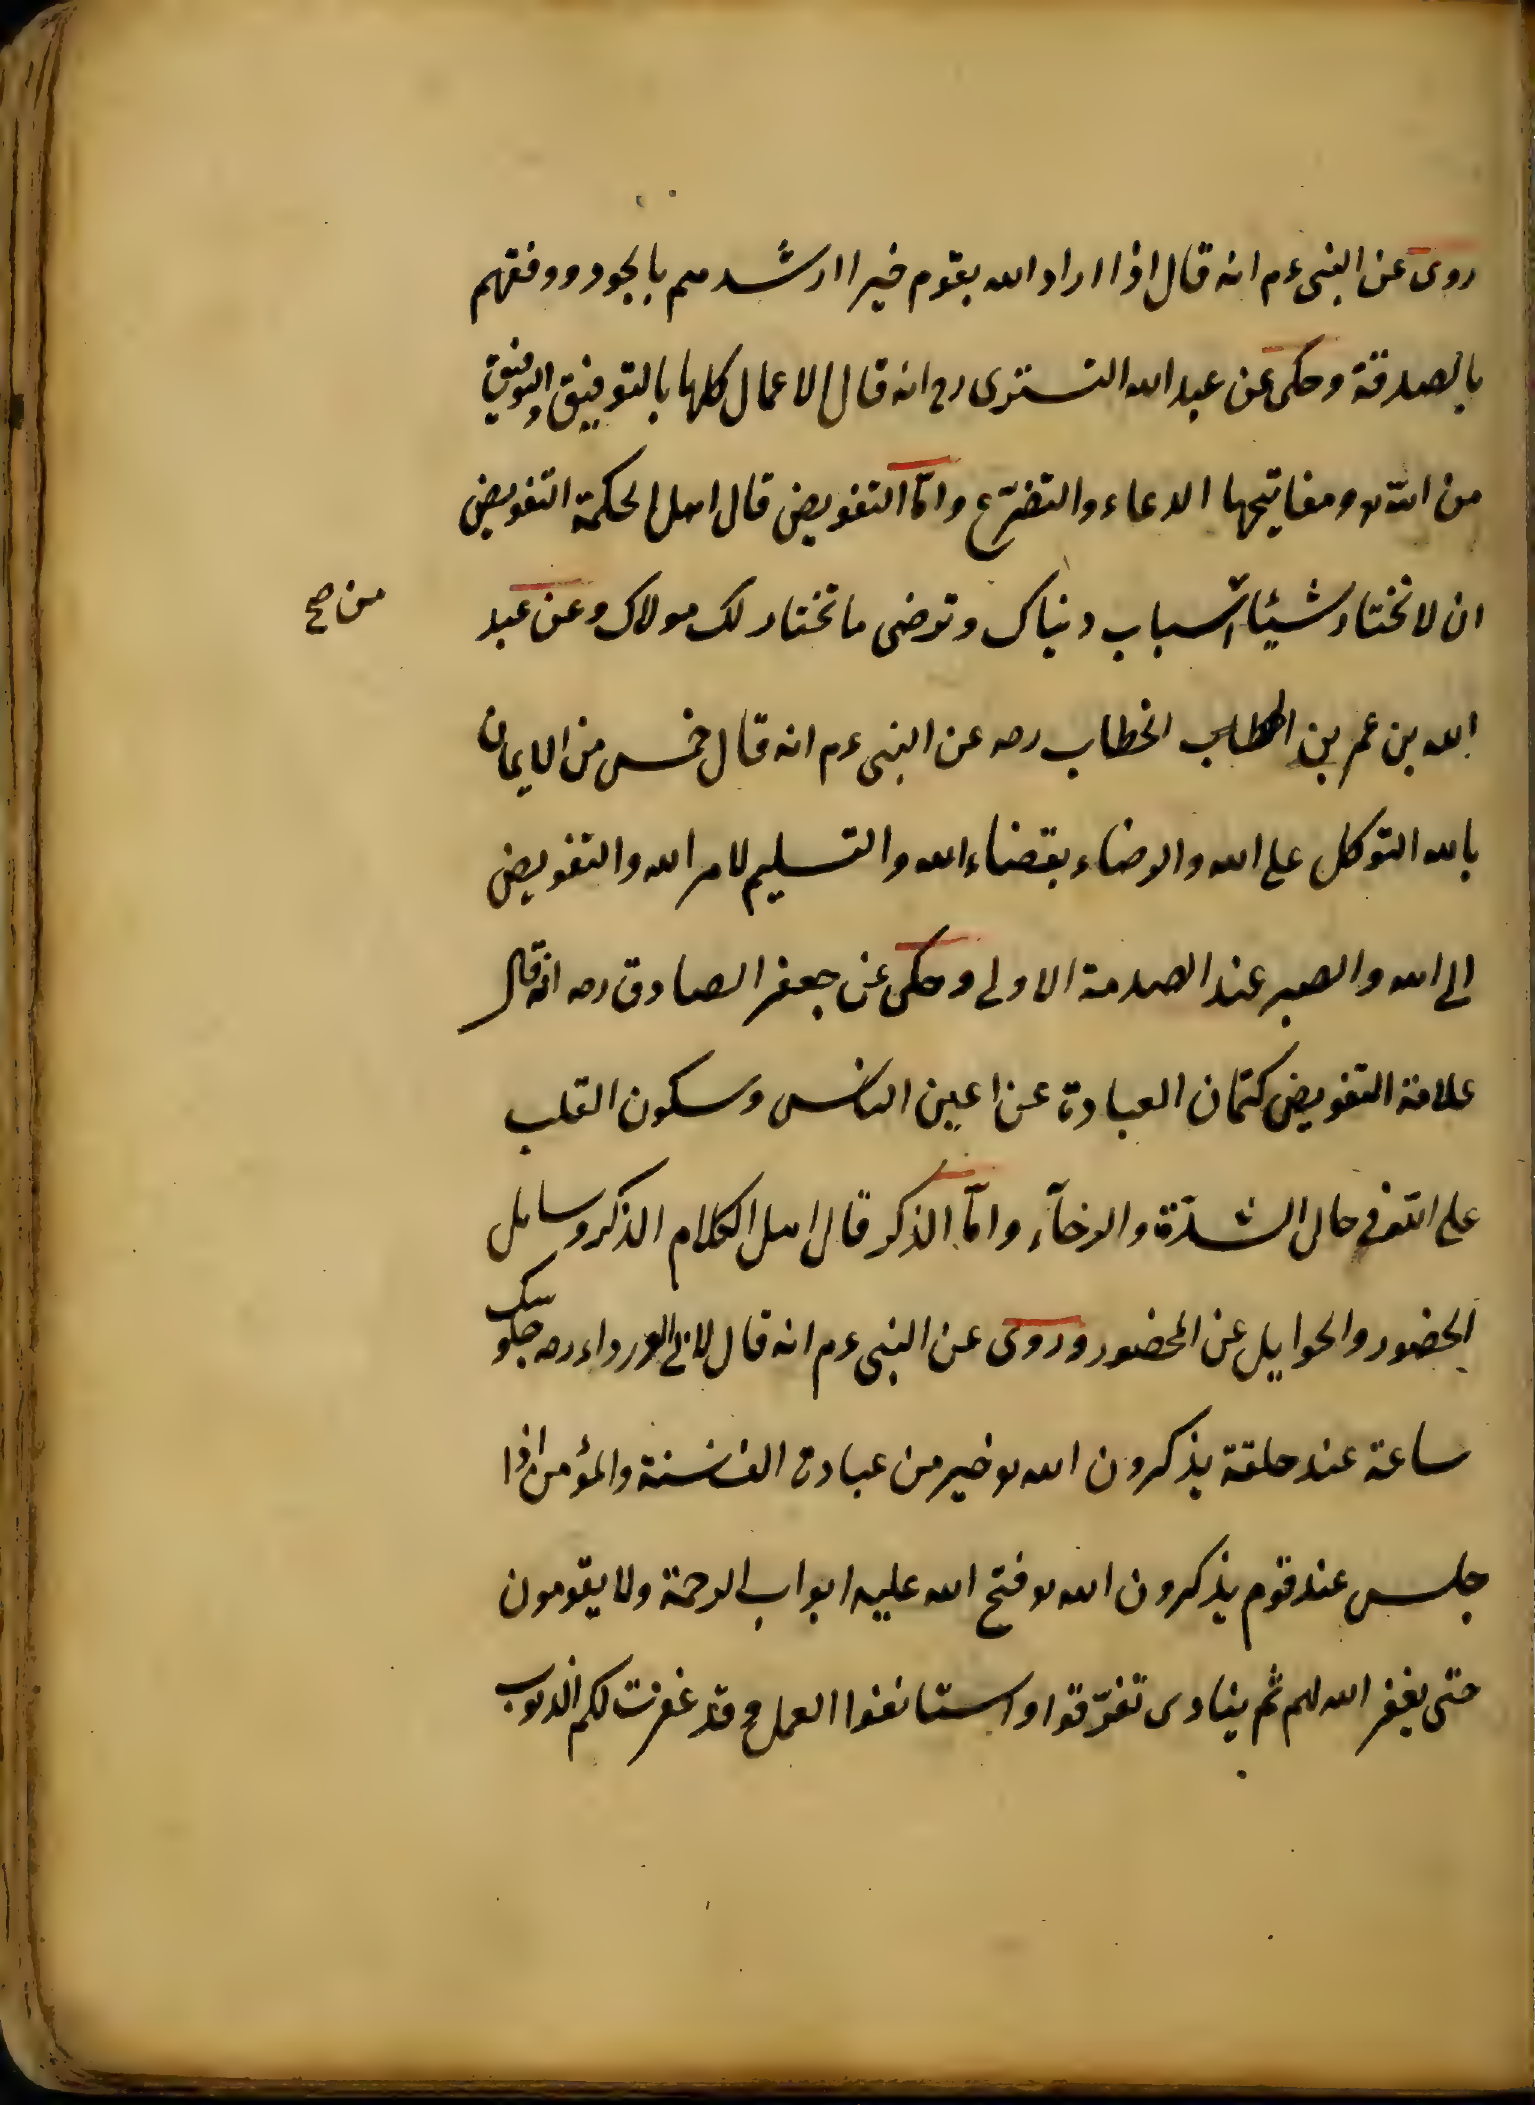 روى عن النبى عم انه قال اذا اراد الله بقوم خيرا ارشدهم بالجود ووفقهم
بالصدقة وحكى عن عبد الله التسترى رح انه قال الاعمال كلها بالتوفيق والتوفيق
من الله تع ومفاتيحها الدعاء والتضرّع وامّا التفويض قال اهل الحكمة التفويض
ان لا تختار شيئا اسباب دنياك وترضى ما تختار لك مولاك وعن عبد
من صح
الله بن عمر بن الخطاب رضه عن النبى عم انه قال خمس من الايمان
بالله التوكل على الله والرضاء بقضاء الله والتسليم لامر الله والتفويض
الى الله والصبر عند الصدمة الاولى وحكى عن جعفر الصادق رضه انه قال
علامة التفويض كتمان العبادة عن اعين الناس وسكون القلب
على الله فى حال الشدّة والرخآء وامّا الذكر قال اهل الكلام الذكر وسايل
الحضور والحوايل عن المحضور وروى عن النبى عم انه قال لابى الدرداء رضه جلوسك
ساعة عند حلقة يذكرون الله تع خير من عبادة الف سنة والمؤمن اذا
جلس عند قوم يذكرون الله تع فتح الله عليه ابواب الرحمة ولا يقومون
حتى يغفر الله لهم ثم ينادى تفرّقوا واستانفوا العمل وقد غفرت لكم الذنوب